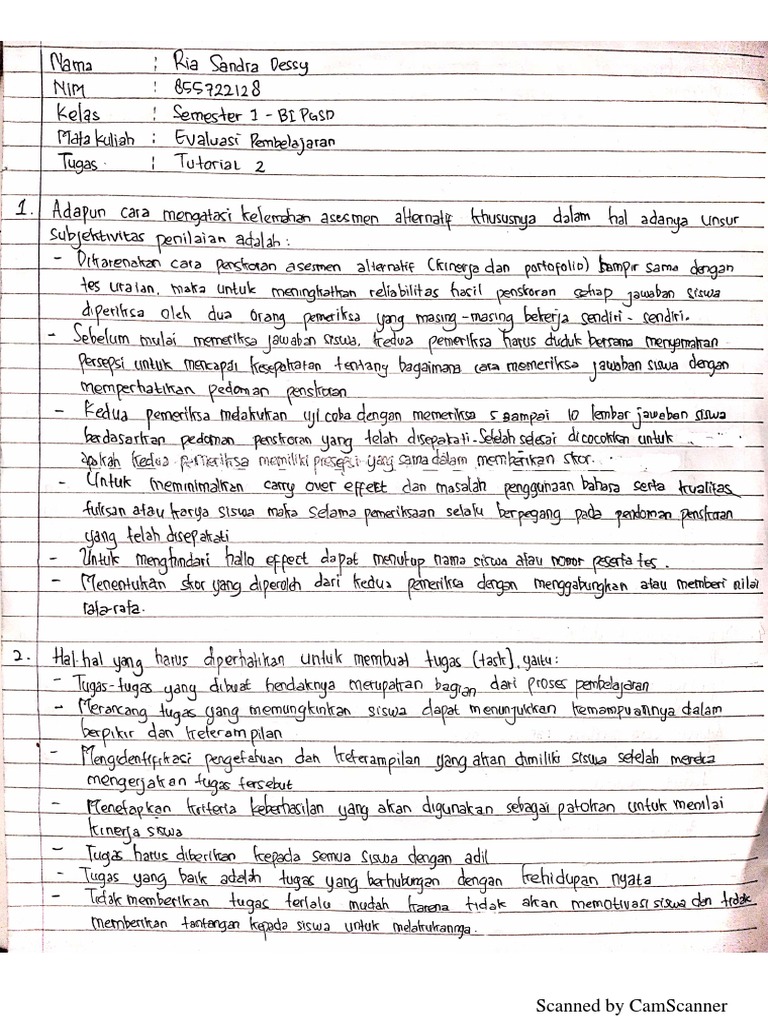 Nama : Ria Sandra Dessy
NIM : 855722128
Kelas : Semester 1 - BI PGSD
Mata kuliah : Evaluasi Pembelajaran
Tugas : Tutorial 2
1. Adapun cara mengatasi kelemahan asesmen alternatif khususnya dalam hal adanya unsur
subjektivitas penilaian adalah :
- Dikarenakan cara penskoran asesmen alternatif (kinerja dan portofolio) hampir sama dengan
tes uraian, maka untuk meningkatkan reliabilitas hasil penskoran setiap jawaban siswa
diperiksa oleh dua orang pemeriksa yang masing-masing bekerja sendiri-sendiri.
- Sebelum mulai memeriksa jawaban siswa, kedua pemeriksa harus duduk bersama menyamakan
persepsi untuk mencapai kesepakatan tentang bagaimana cara memeriksa jawaban siswa dengan
memperhatikan pedoman penskoran
- Kedua pemeriksa melakukan uji coba dengan memeriksa 5 sampai 10 lembar jawaban siswa
berdasarkan pedoman penskoran yang telah disepakati. Setelah selesai dicocokkan untuk
apakah kedua pemeriksa memiliki presepsi yang sama dalam memberikan skor.
- Untuk meminimalkan carry over effect dan masalah penggunaan bahasa serta kualitas
tulisan atau karya siswa maka selama pemeriksaan selalu berpegang pada pendoman penskoran
yang telah disepakati
- Untuk menghindari hallo effect dapat menutup nama siswa atau nomor peserta tes.
- Menentukan skor yang diperoleh dari kedua pemeriksa dengan menggabungkan atau memberi nilai
rata-rata.
2. Hal-hal yang harus diperhatikan untuk membuat tugas (task), yaitu :
- Tugas-tugas yang dibuat hendaknya merupakan bagian dari proses pembelajaran
- Merancang tugas yang memungkinkan siswa dapat menunjukkan kemampuannya dalam
berpikir dan keterampilan
- Mengidentifikasi pengetahuan dan keterampilan yang akan dimiliki siswa setelah mereka
mengerjakan tugas tersebut
- Menetapkan kriteria keberhasilan yang akan digunakan sebagai patokan untuk menilai
kinerja siswa
- Tugas harus diberikan kepada semua siswa dengan adil
- Tugas yang baik adalah tugas yang berhubungan dengan kehidupan nyata
- Tidak memberikan tugas terlalu mudah karena tidak akan memotivasi siswa dan tidak
memberikan tantangan kepada siswa untuk melakukannya.
Scanned by CamScanner